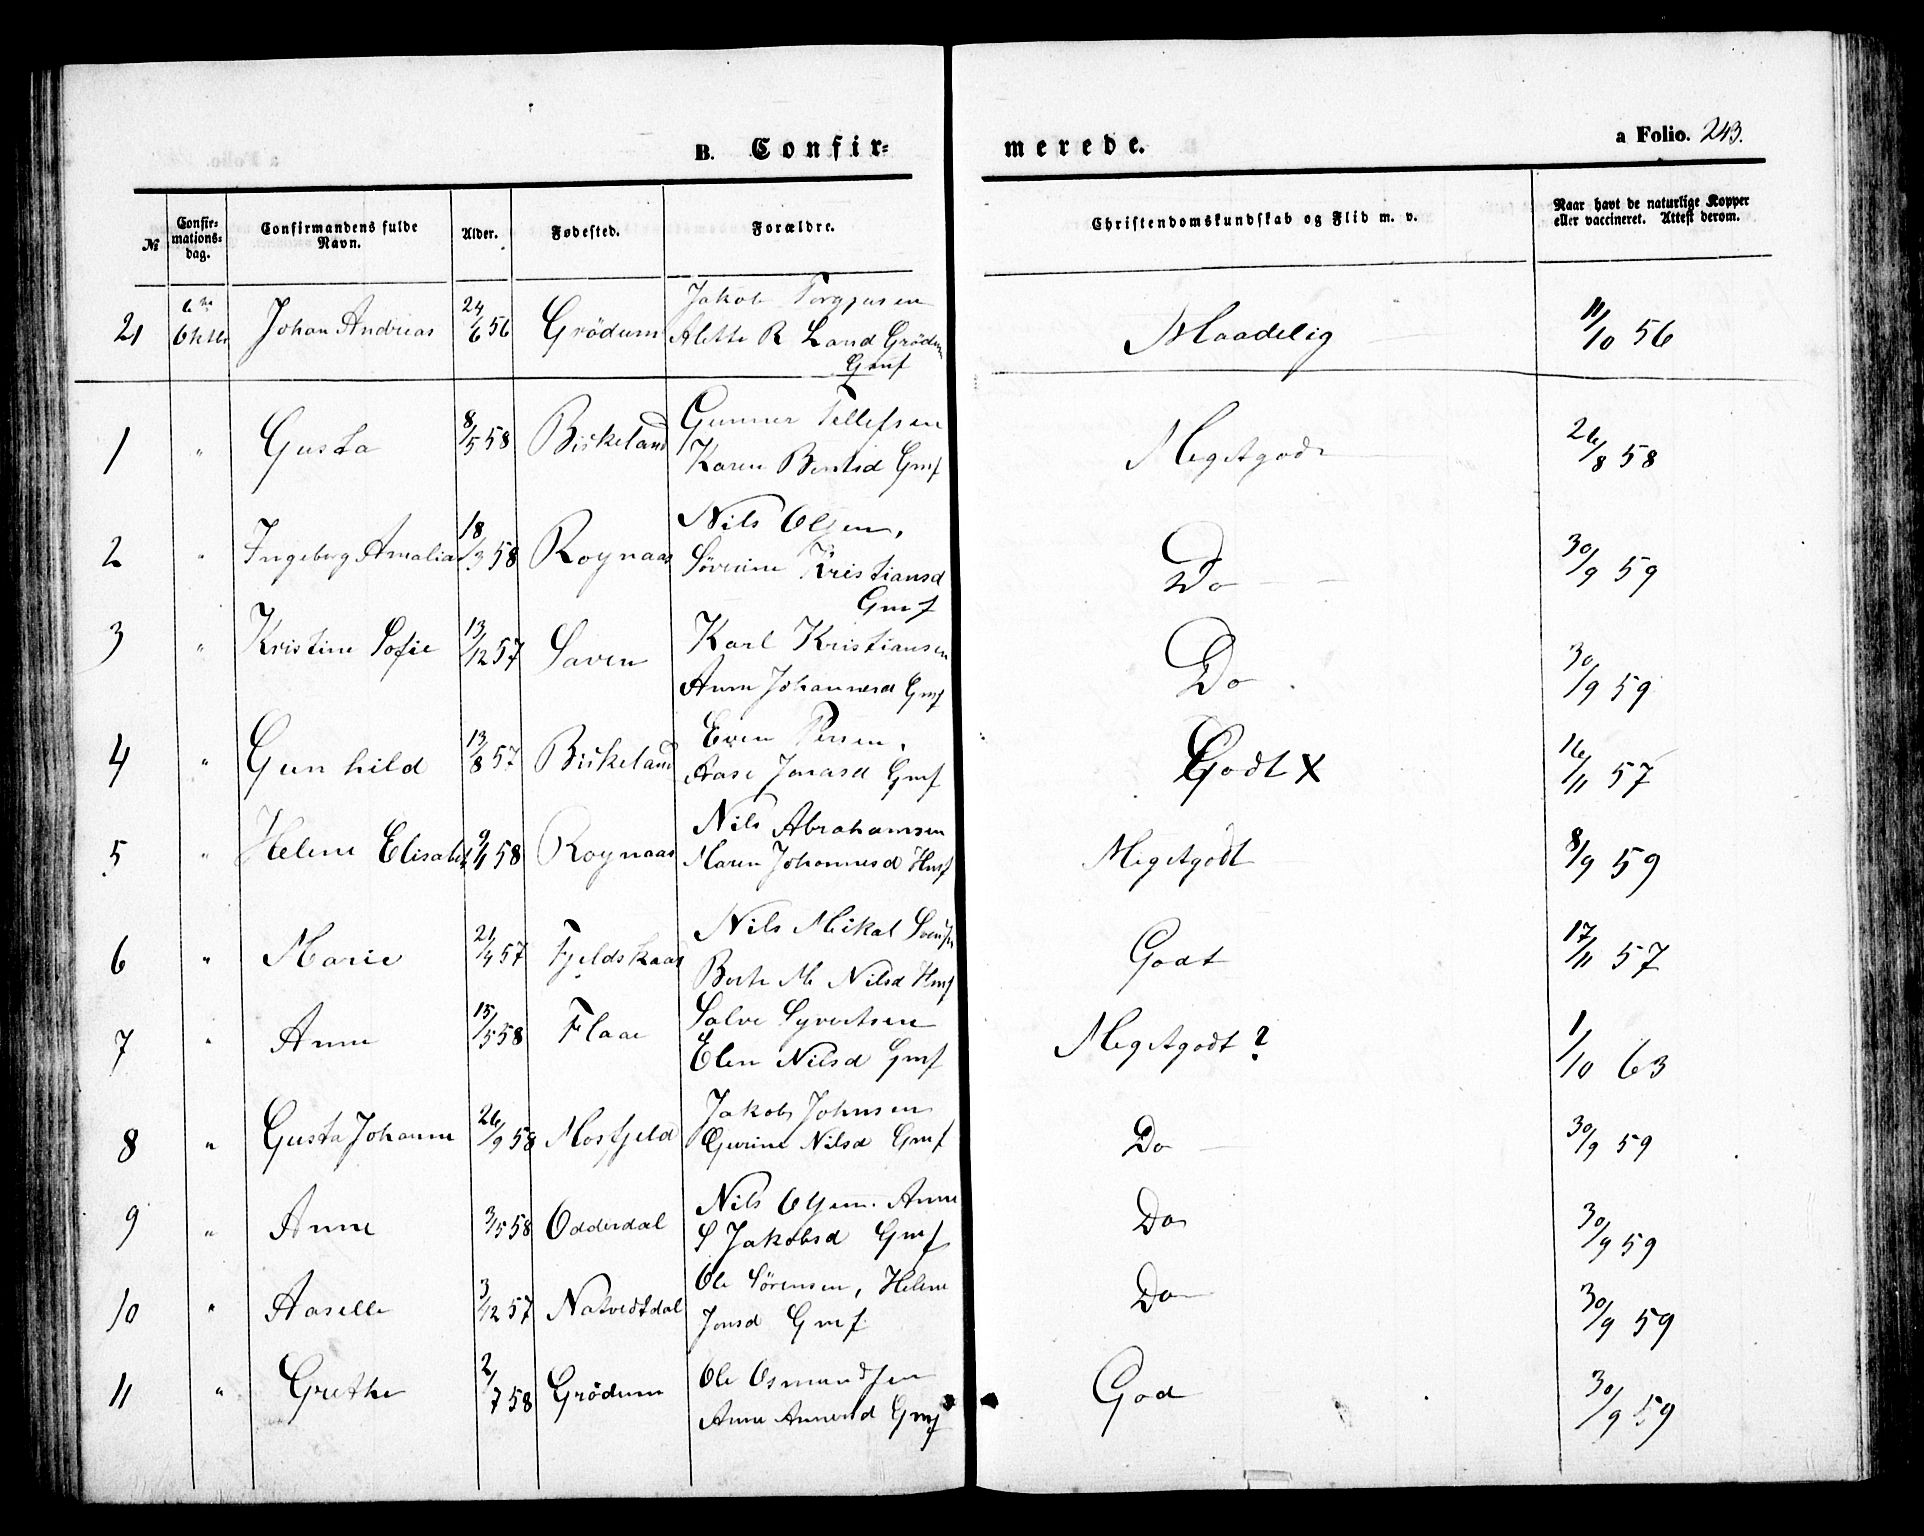 B. Confir=
merede.
a Folio. 243.
№
Confir-
mations-
dag.
Confirmandens fulde
Navn.
Alder.
Fødested.
Forældre.
Christendomskundskab og Flid m. v.
Naar havt de naturlige Kopper
eller vaccineret. Attest derom.
21 Johan Andreas 24/6 56 Grödum Jakob
Alette R Land Grödum
Gmf
Maadelig 11/10 56
1 " Gusta 8/5 58 Birkeland Gunner Tellefsen
Karen Bentsd Gmf
Megetgodt 26/8 58
2 " Ingeborg Amalia 18/3 58 Roynaas Nils Olsen,
Sörine Kristiansd
Gmf
Do 30/9 59
3 " Kristine Sofie 13/12 57 Saven Karl Kristiansen
Anne Johannesd Gmf
Do 30/9 59
4 " Gunhild 13/8 57 Birkeland Even Persen,
Aase Jonasd Gmf
Godt x 16/11 57
5 " Helene Elisabet 9/11 58 Roynaas Nils Abrahamsen
Maren Johannesd Hmf
Megetgodt 8/9 59
6 " Marie 21/4 57 Fjeldskaar Nils Mikal
Berte M Nilsd Hmf
Godt 17/11 57
7 " Anne 15/5 58 Flaae Salve Syvertsen
Elen Nilsd Gmf
Megetgodt? 1/10 63
8 " Gusta Johanne 26/9 58 Mosfjeld Jakob Johnsen
Gurine Nilsd Gmf
Do 30/9 59
9 " Anne 3/5 58 Odderdal Nils Olsen. Anne
S Jakobsd Gmf
Do 30/9 59
10 " Aaselle 3/12 57 Natvedtdal Ole Sörensen, Helene
Jonsd Gmf
Do 30/9 59
11 " Grethe 2/7 58 Grödum Ole Osmundsen
Anne Gmf
God 30/9 59